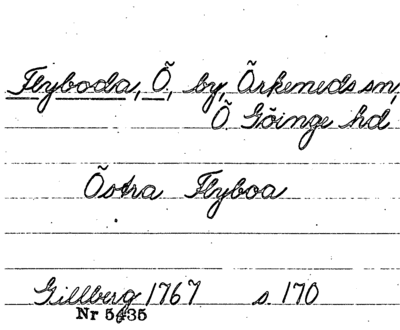 Flyboda, Ö, by, Örkeneds sn,
Ö. Göinge hd
Östra Flyboa
Gillberg 1767 s. 170
Nr 5435